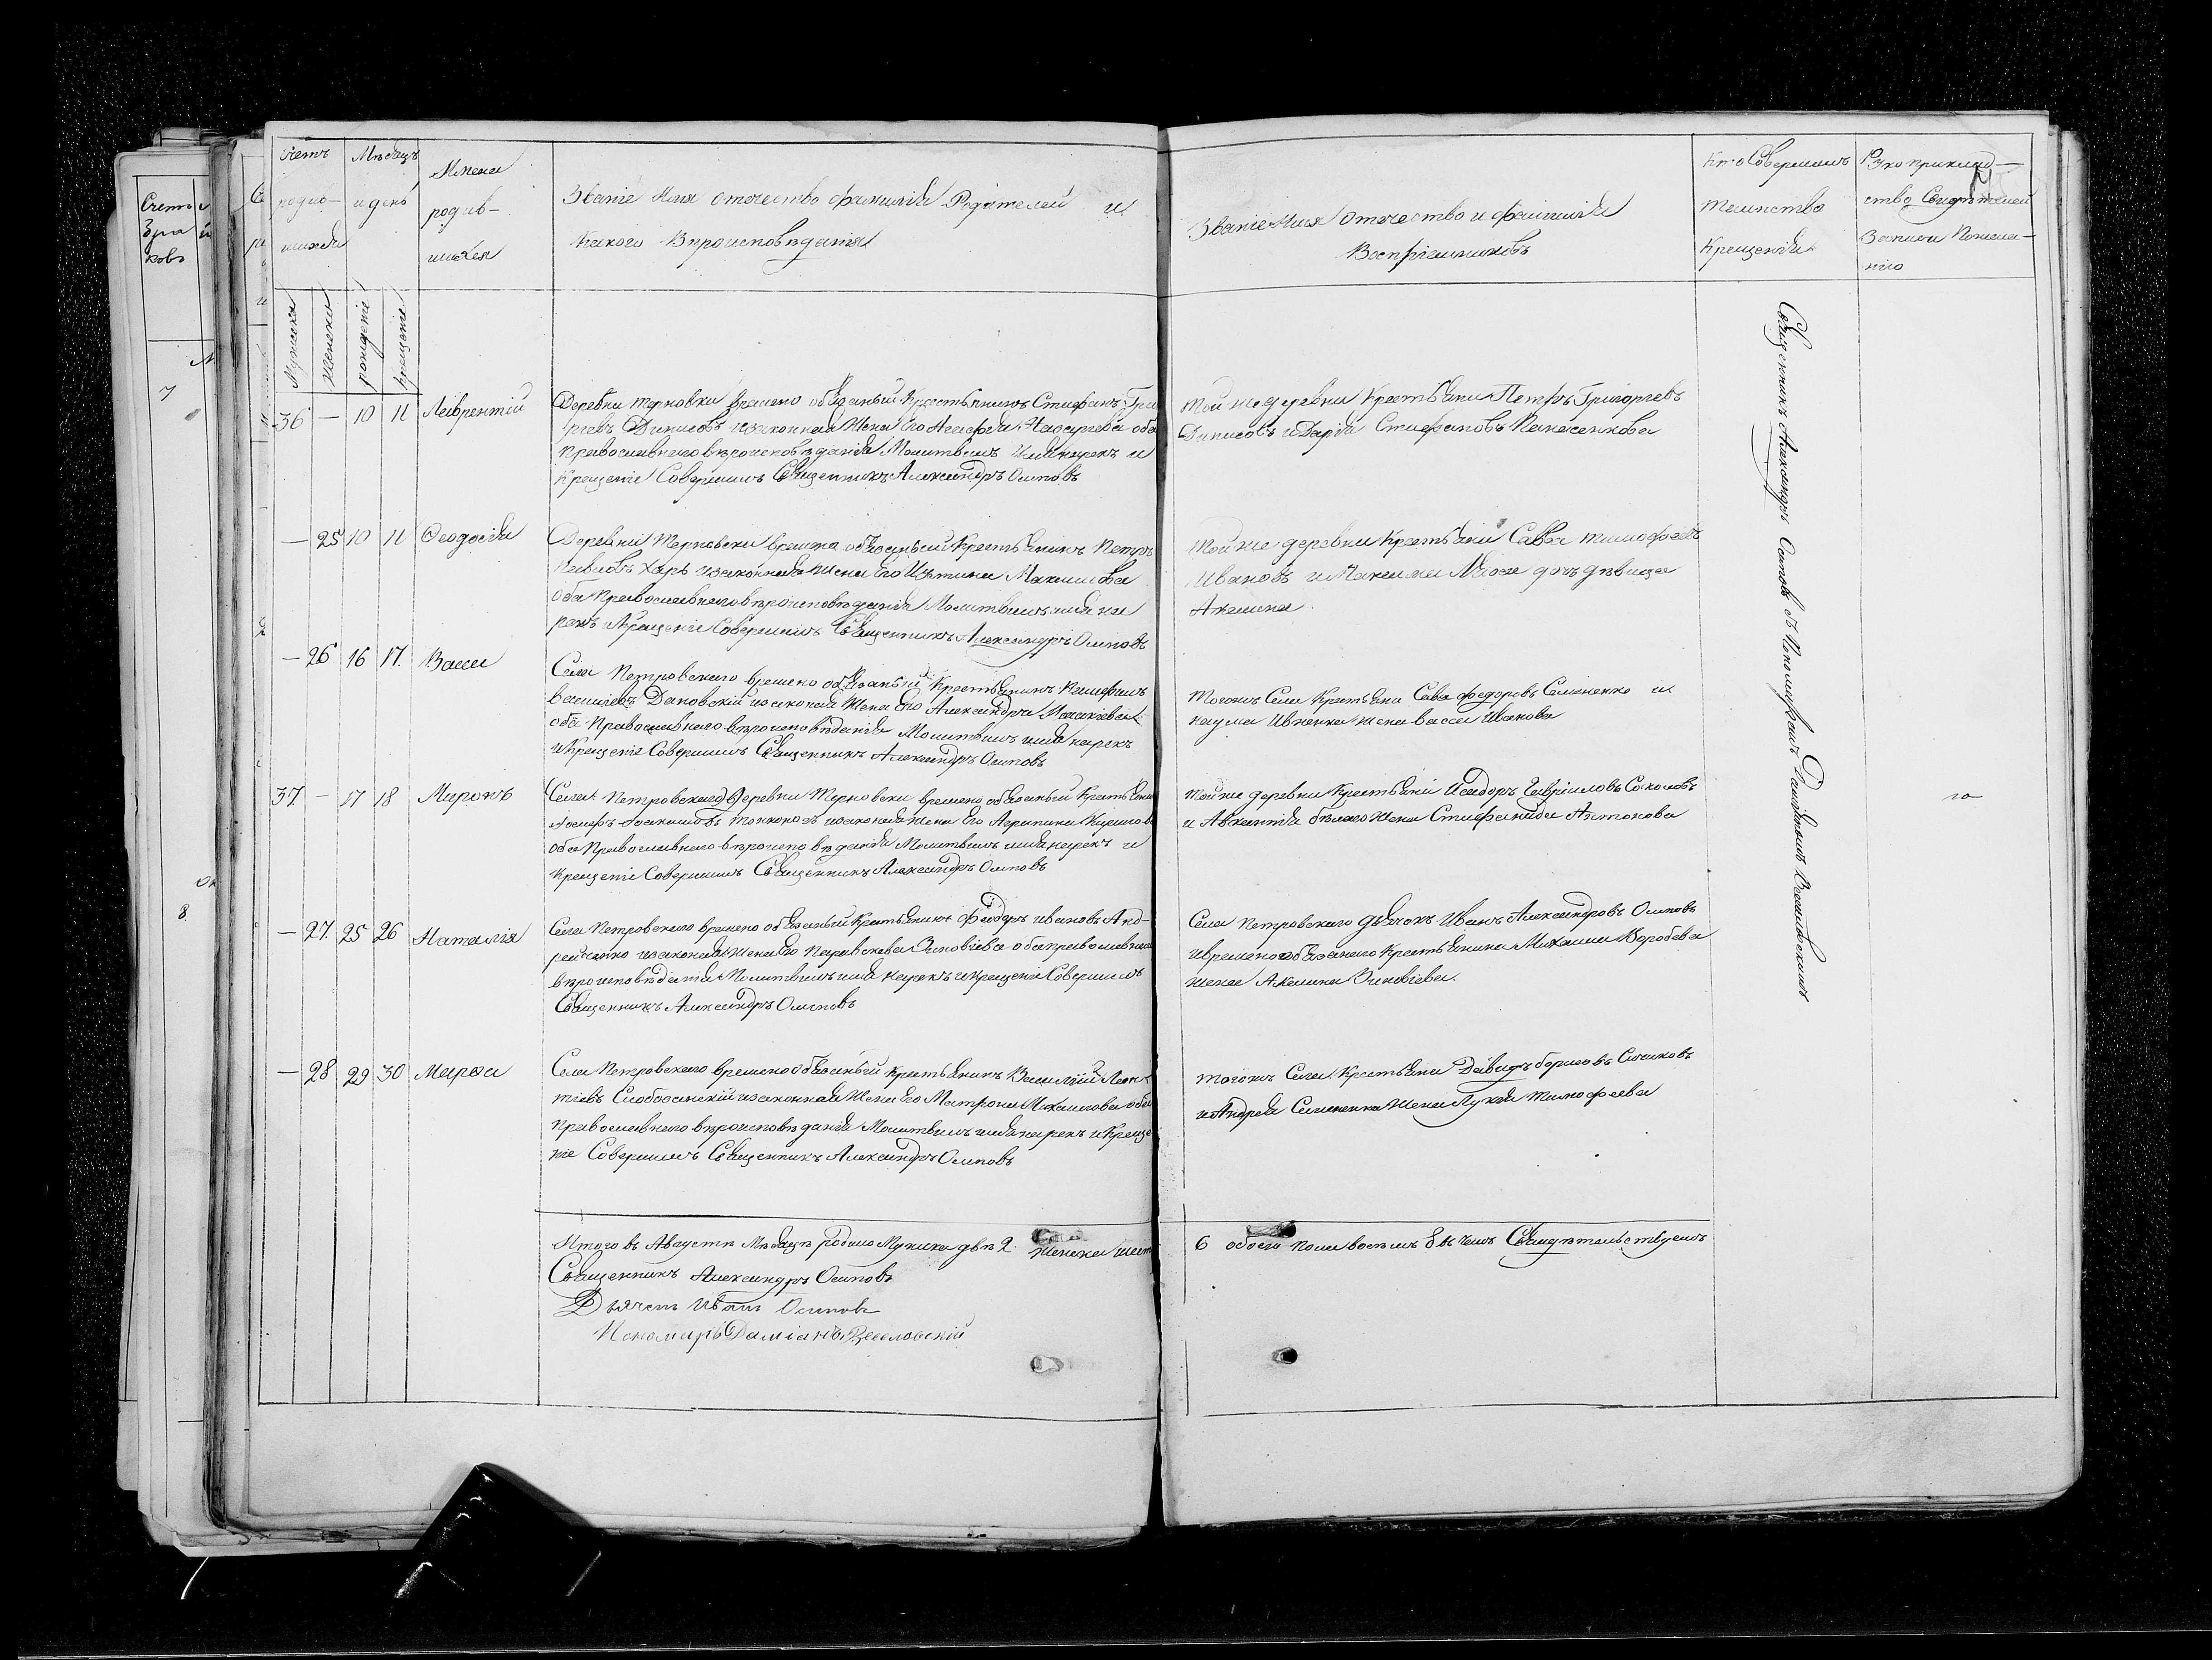 Счетъ
родив-
шихся
Мѣсяцъ
и день
Имена
родив-
шихся
Званіе Имя отечество фамилія Родителей и
Какого Вѣроисповѣданія
Званіе Имя отечество и фамилія
Воспріемниковъ
Кто Совершилъ
таинство
Крещенія
Рукоприклад-
ство Свидѣтелей
Записи Пожела-
нію
Мужеска
Женска
рожденіе
крещеніе
36 — 10 11 Лаврентій
Деревни Терновки временно обязаный Крестьянинъ Стефанъ Гри
Денисовъ изаконная Жена Его Агафія оба
православнаго вѣроисповѣданія Молитвилъ Имянарекъ и
Крещеніе Совершилъ Священникъ Александръ Осиповъ
Той же деревни Крестьяни Петръ Григорьевъ
Денисовъ и Дарія Стефановъ Панасенкова
— 25 10 11 Феодосія
Деревни Терновски времено обязаный Крестьянинъ Петръ
изаконная Жена Его Устина Максимова
Оба Православнаго вѣроисповѣданія Молитвилъ имя на
рекъ и Крещеніе Совершилъ Священникъ Александръ Осиповъ
Той же деревни Крестьяни Савва тимофеевъ
Ивановъ и Максима дѣвица
Акилина
— 26 16 17 Васса
Села Петровскаго времено обязаный Крестьянинъ
Дановскій изаконая Жена Его Александра
оба Православнаго вѣроисповѣданія Молитвилъ имя нарекъ
и Крещеніе Совершилъ Священникъ Александръ Осиповъ
Тогожъ Села Крестьяни Сава федоровъ Семененко и
наума Ивненка жена васса Иванова
37 — 17 18 Миронъ
Села Петровскаго Деревни Терновски времено обязаный Крестьянин
изаконая Жена Его Агрипина
оба Православнаго вѣроисповѣданія Молитвилъ имя нарекъ и
Крещеніе Совершилъ Священникъ Александръ Осиповъ
Той же деревни Крестьяни Исидоръ Гавриловъ Соколовъ
и Авксентія бѣлаго жена Стефанида Антонова
— 27 25 26 Наталія
Села Петровскаго времено обязаный Крестьянинъ Феодоръ ивановъ Анд-
рейченко изаконая Жена Его Параскева Зиновіева оба православнаго
вѣроисповѣданія Молитвилъ имя нарекъ и крещеніе Совершилъ
Священникъ Александръ Осиповъ
Села Петровскаго дьячокъ Иванъ Александровъ Осиповъ
и времено обязаного Крестьянина Михаила Воробева
жена Акилина Зиновіева
— 28 29 30 Марѳа
Села Петровскаго времено обязаный Крестьянинъ Василій Леон
тіевъ Слобозанскій изаконная Жена Его Матрона Михаилова оба
православнаго вѣроисповѣданія Молитвилъ имя нарекъ и Креще
ніе Совершилъ Священникъ Александръ Осиповъ
Тогожъ Села Крестьяни Давидъ борисовъ
и Андрея Семененка жена Лукія Тимофеева
Священникъ Александръ Осиповъ съ Пономаремъ Даміаномъ Веселовскимъ
Итого въ Августѣ Мѣсяцѣ родилось Мужеска двѣ 2 женска шест
6 обоего пола восемь 8 въ чемъ Свидѣтельствуемъ
Священникъ Александръ Осиповъ
Дьячекъ Иванъ Осиповъ
Пономарь Даміанъ Веселовскій
Счетъ
7
8